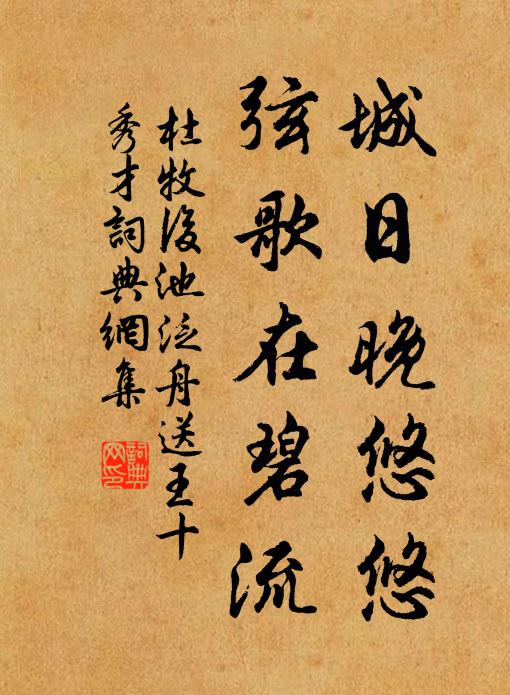 城日晚悠悠
弦歌在碧流
杜牧後池泛舟送王十
秀才詞典網集
詞典
网印